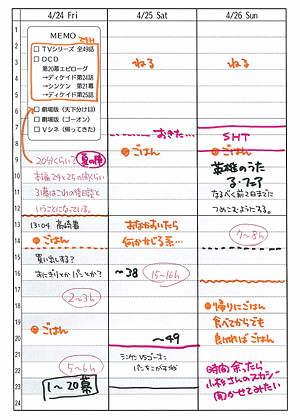 4/24 Fri
4/25 Sat
4/26 Sun
MEMO
□ TVシリーズ 全49話
□ DCD
第20幕エピローグ
→ディケイド第24話
→シンケン 第21幕
→ディケイド第25話
□ 劇場版(天下分け目)
□ 劇場版(ゴーオン)
□ Vシネ(帰ってきた)
20分くらい?
夏の陣
本編24と25の間くらい
ということになっている。
13:04 高崎着
ごはん
買い出しする?
おにぎりとかパンとか?
2~3h
ごはん
5~6h
1~20幕
ねる
おきた
ごはん
おなかすいたら
何かかじる系…
~38
15~16h
~49
シンケンVSゴーオン
ねる
SHT
ごはん
英雄のうた
なるべく前2日までに
つめこむようにする。
7~8h
帰りにごはん
食べてからでも
良ければごはん
時間余ったら
小松さんのスカシー
聞かせてみたい
1
2
3
4
5
6
7
8
9
10
11
12
13
14
15
16
17
18
19
20
21
22
23
24